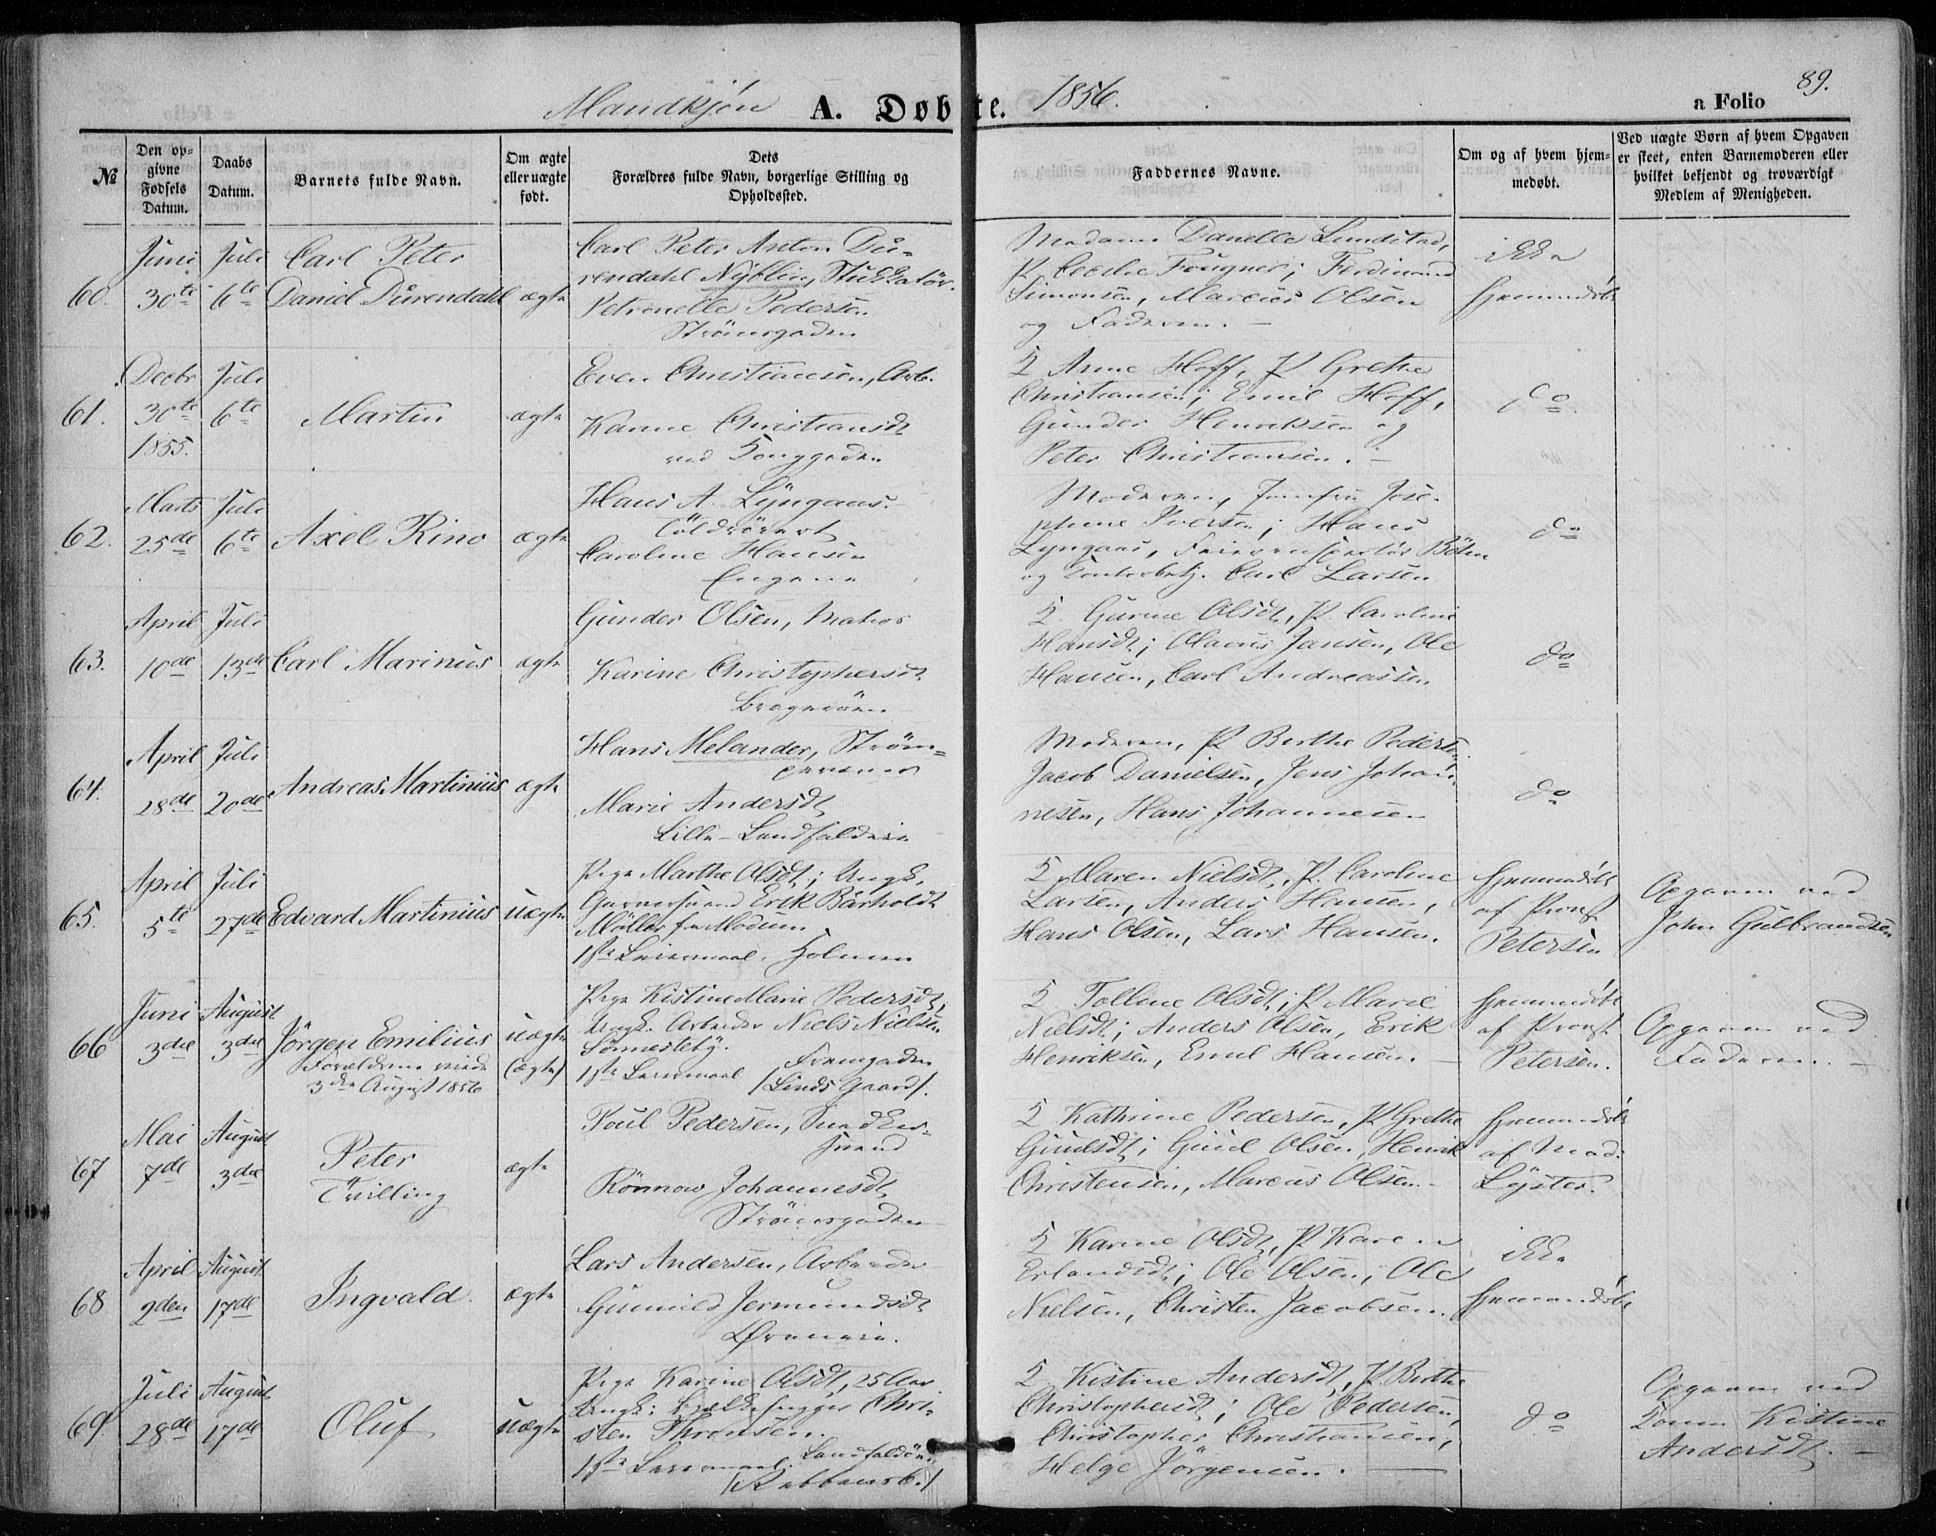 Mandkjön A. Døbte. 1856. a Folio 89.
№
Den opgivne Fødsels Datum.
Daabs Datum.
Barnets fulde Navn.
Om ægte eller uægte født.
Dets Forældres fulde Navn, borgerlige Stilling og Opholdssted.
Faddernes Navne.
Om og af hvem hjemmedøbt.
Ved uægte Børn af hvem Opgaven er skeet, enten Barnemoderen eller hvilket bekjendt og troværdigt Medlem af Menigheden.
60.
Juni 30te
Juli 6te
Carl Peter
Daniel Dürendahl
ægte
Carl Peter Anton Dü-
rendahl Nyblin, Stukkatör.
Petronelle Pedersen
Strömsgaden
Madame Danelle Lundstad,
P. Cecilie Fougner; Ferdinand
Simonsen, Marcus Olsen
og Faderen. –
ikke
hjemmedöbt
61.
Decbr 30te 1855.
Juli 6te
Martin
ægte
Even Christiansen, Arb.
Karine Christiansdt
ved Tonggaden
K Anne Hoff, P Grethe
Christiansen; Emil Hoff,
Gunder Henriksen og
Peter Christiansen. –
do
62.
Marts 25de
Juli 6te
Axel Rino
ægte
Hans A. Lyngaas.
Toldrörert
Caroline Hansen
Engene
Moderen, Jomfru Jose-
phine Iversen; Hans
Lyngaas, Feierinspectör Böhn
og Contorbetj. Carl Larsen
do
63.
April 10de
Juli 13de
Carl Marinius
ægte
Gunder Olsen, Matros
Karine Christophersdt
Brageröen
K Gurine Olsdt, P. Caroline
Hansdt; Olaves Jansen, Ole
Hansen, Carl Andreassen
do
64.
April 28de
Juli 20de
Andreas Martinius
ægte
Hans Melander, Ström-
Marie Andersdt
Lille-Landfaldeie
Moderen, P Berthe Pedersen
Jacob Danielsen, Jens Johan-
nesen, Hans Johannesen
do
65.
April 5te
Juli 27de
Edvard Martinius
uægte
Pige Marthe Olsdt; Ungk.
Garversvend Erik Bärholdt
Möller fra Modum
1ste Leiermaal. Holmen
K Maren Nielsdt, P. Caroline
Larsen, Anders Hansen,
Hans Olsen, Lars Hansen.
hjemmedöbt
af Provst
Petersen
Opgaven ved
John Gulbrandsen
66
Juni 3die
August 3die
Jörgen Emilius
Forældrene viede
3die August 1856
uægte
(ægte)
Pige Kistine Marie Pedersdt,
Ungk. Arbeider Niels Nielsen
Sönnesteby.
1ste Leiermaal Framgaden
(Linds Gaard).
K Tolline Olsdt; P Marie
Nielsdt; Anders Olsen, Erik
Henriksen, Emil Hansen. –
hjemmedöbt
af Provst
Petersen.
Opgaven ved
Faderen. –
67
Mai 7de
August 3die
Peter
Tvilling
ægte
Poul Pedersen, Snedker-
svend
Rönnow Johannesdt
Strömsgaden
K Kathrine Pedersen, P Grethe
Gulsdt; Guul Olsen, Henrik
Christensen, Marcus Olsen –
hjemmedöbt
af Mad.
Löyster.
68
April 2den
August 17de
Ingvald.
ægte
Lars Andersen, Arbeider
Gunnild Jermundsdt
Øreneie.
K Karine Olsdt, P Karen
Erlandsdt; Ole Olsen, Ole
Nielsen, Christen Jacobsen.
ikke
hjemmedöbt
69.
Juli 28de
August 17de
Oluf
uægte
Pige Karine Olsdt, 25 Aar
Ungk: Chri-
sten Thronsen.
1ste Leiermaal. Landfaldöen
K Kistine Andersdt, P. Berthe
Christophersdt; Ole Pedersen,
Christopher Christiansen,
Helge Jörgensen. –
do
Opgaven ved
Konen Kistine
Andersdt. –